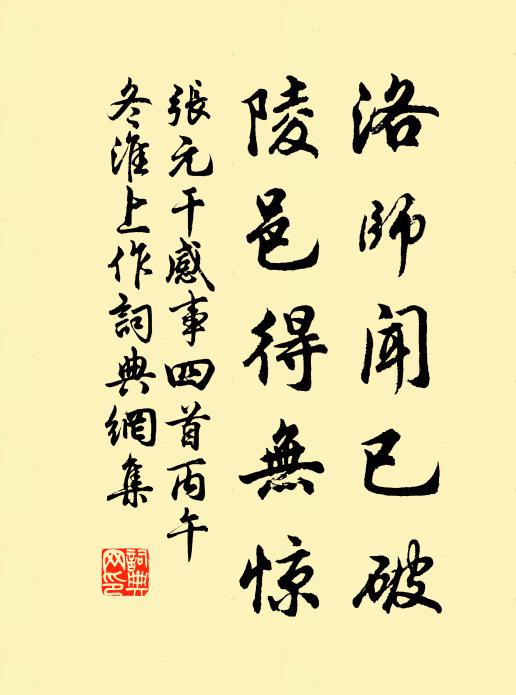 洛师闻已破
陵邑得無惊
張元干感事四首丙午
冬淮上作詞典網集
詞典
网印